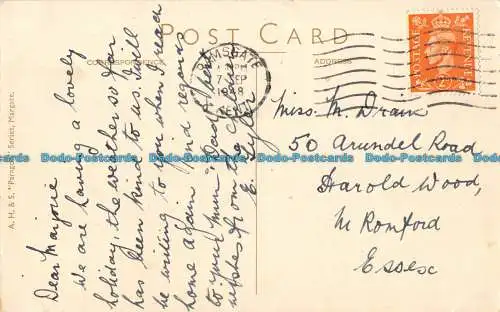 POST CARD
CORRESPONDENCE
ADDRESS
A. H. & S. "Paragon" Series, Margate.
Dear Marjorie
We are having a lovely
holiday, the weather so far
has been kind to us. Will
be writing to you when I reach
home again. Kind regards
to "your Mum" & Dad. Best
wishes from the
E. Tyler
RAMSGATE
7 SEP
1948
POSTAGE
REVENUE
Miss M. Drain
50 Arundel Road
Harold Wood,
Nr Romford
Essex
Dodo-Postcards Dodo-Postcards Dodo-Postcards Dodo-Postcards Dodo-Postcards